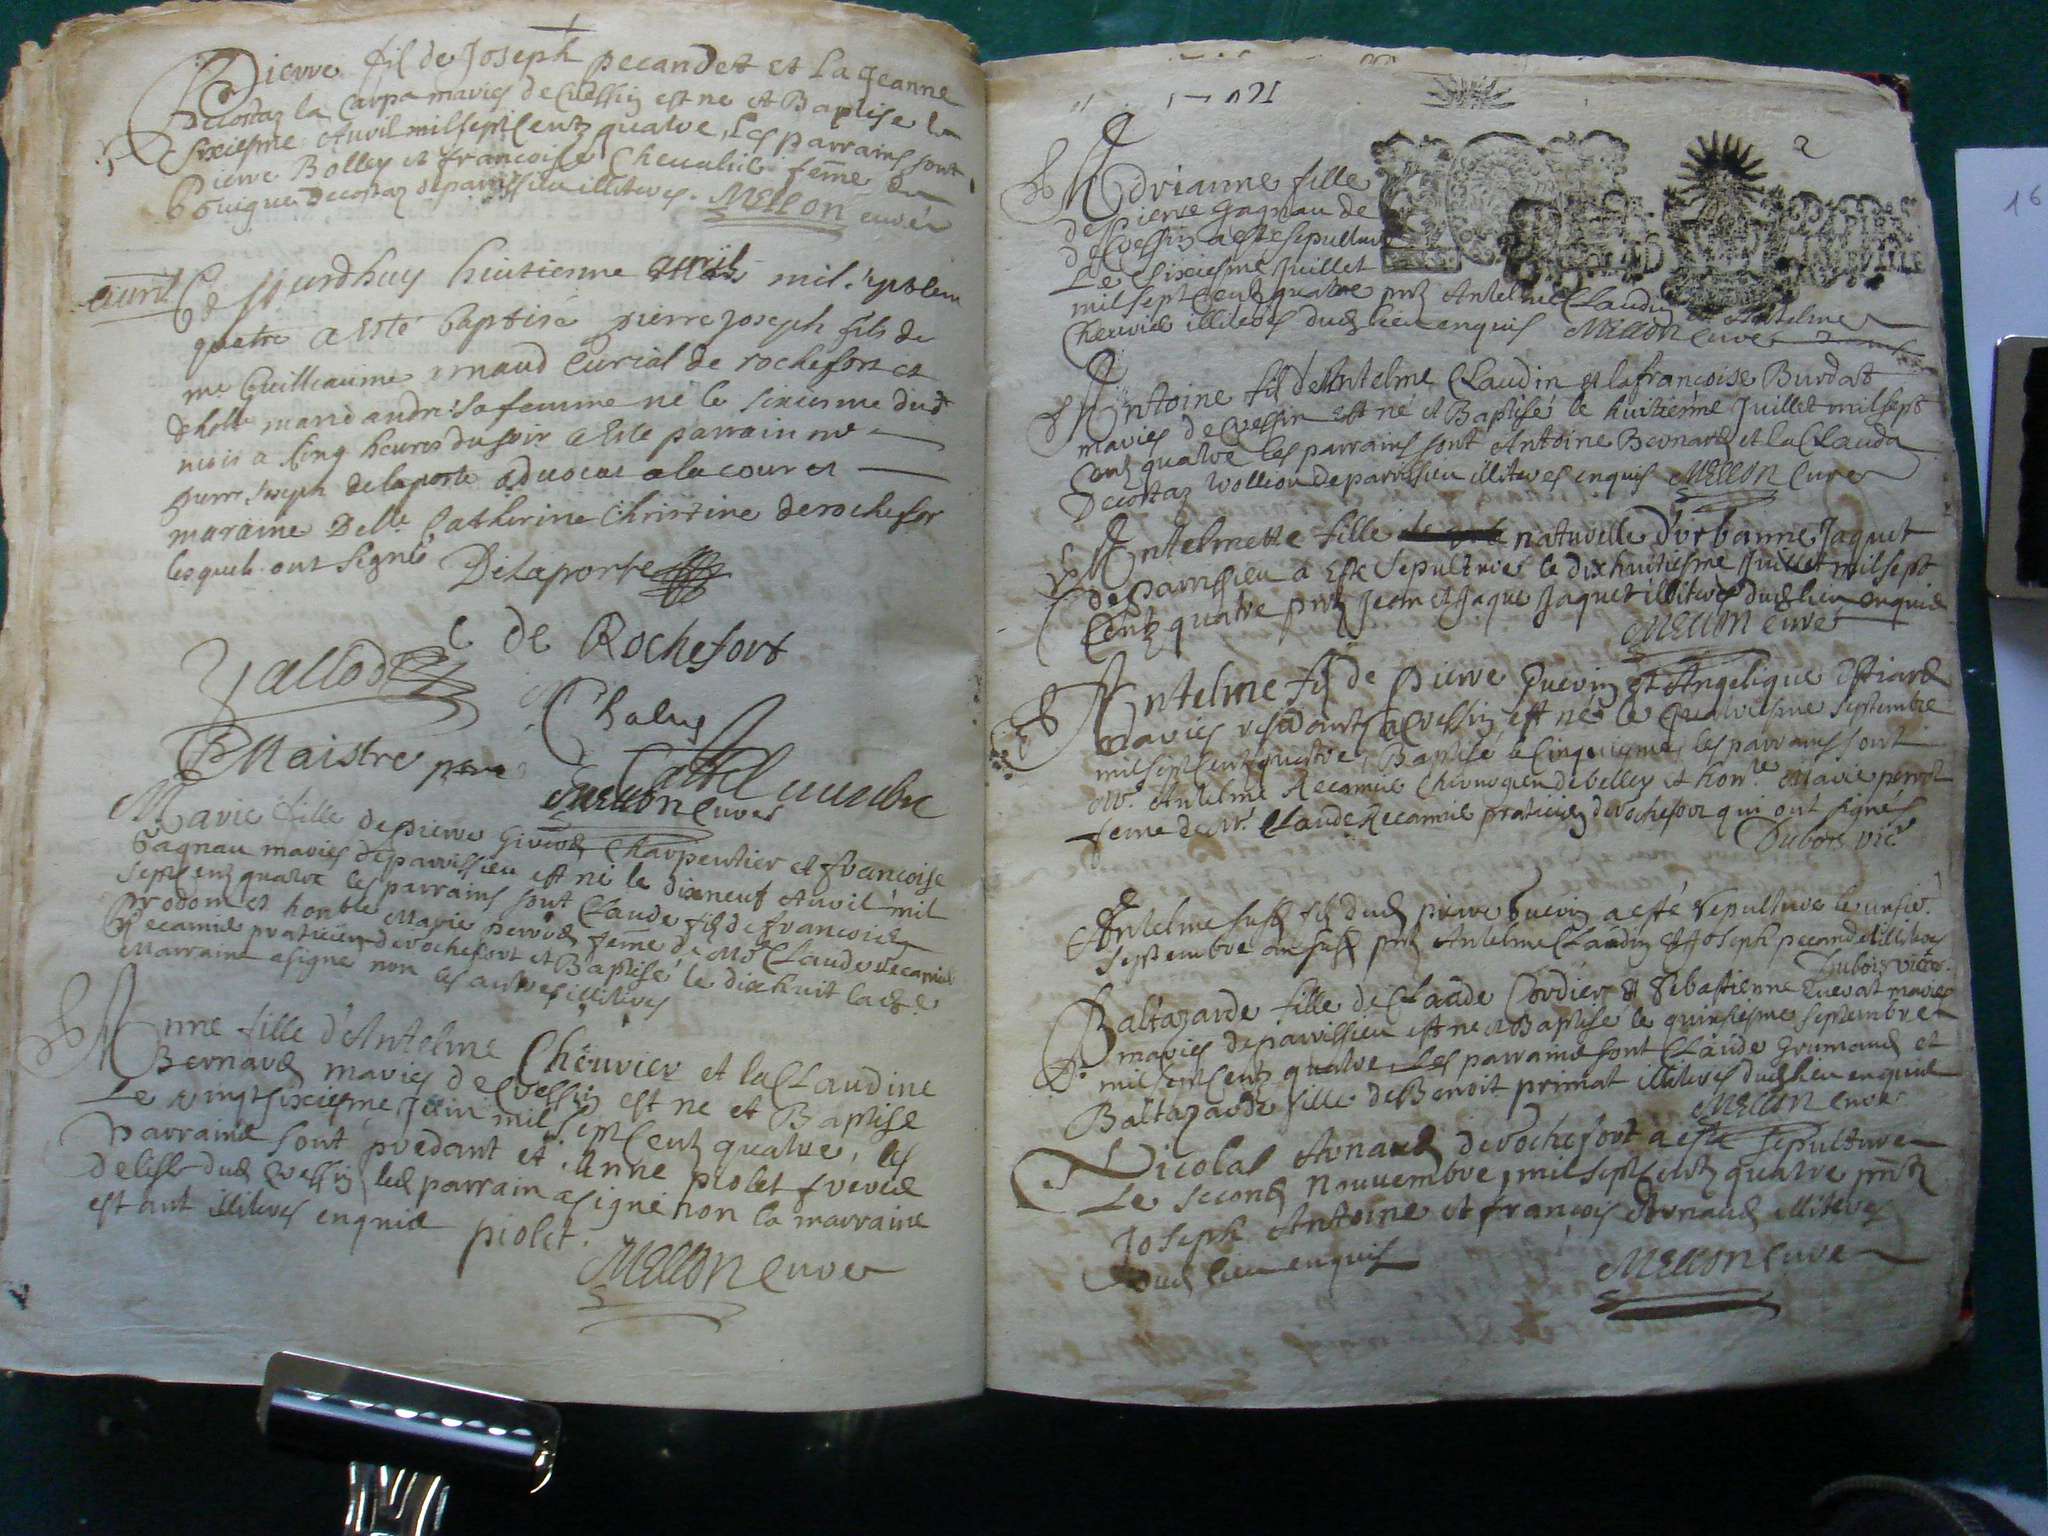 Pierre fil de Joseph pecandet et La Jeanne
Decostaz la Carpa mariés de Cressin est ne et Baptise le
sixiesme Auvil mil sept Centz quatre, Les parrains sont
Pierre Bolley et francoise Cheuallié feme de
Guigue Decostaz de parrissieu illiteres. MELLON curé
auril
Ce jourdhuy huitienne auril mil sept cent
quatre a esté baptisé pierre Joseph fils de
me Guilleaume arnaud Curial de rochefort et
de helle marie andre sa femme né le sixiesme dud
mois a Cinq heures du soir a Esté parrain me
pierre Joseph delaporte aduocat a la cour et
maraine Delle Catherine Christine de rochefor
lesquels ont signé Delaporte
C de Rochefort
Vallod
Chalus
Maistre pere
MELLON Curé
Marie fille de pierre Giroud Charpentier et francoise
Gagnau mariés de parrissieu est né le dixneuf Auvil mil
sept Centz quatre les parrains sont Claude fil de francois
prodom et honble Marie perrod feme de Mr Claude Recamié
Recamié praticien de rochefort et Baptisé le dixhuit lad
Marraine a signé non les autres illiteres
Anne fille d'Antelme Cheuvier et la Claudine
Bernard mariés de Cressin est ne et Baptise
Le vingtsixiesme Juin mil sept Centz quatre, les
parrains sont predant et Anne piolet frere
delisle dud Cressin led parrain a signé non la marraine
estant illiteres enquis piolet.
MELLON Curé
2
Adrianne fille
de pierre gagnau de
de Cressin a esté sepulturé
Le sixiesme Juillet
mil sept Centz quatre prtz Antelme Claudin et Antelme
Cheuvié illiteres dud lieu enquis MELLON Curé
Antoine fil d'Antelme Claudin et la francoise Burdat
mariés de Cressin est né et Baptisé le huitiéme Juillet mil sept
Centz quatre les parrains sont Antoine Bernard et la Clauda
Decostaz Vollion de parrissieu illiteres enquis MELLON Curé
Antelmette fille naturelle d'Urbanne Jaquet
de parrissieu a Este Sepulturé le dixhuitiesme Juillet mil sept
Centz quatre prtz Jean et Jaque Jaquet illiteres dud lieu enquis
MELLON Curé
Antelme fil de pierre Guerin et Angelique Estiard
mariés residants a Cressin est né le Quatriesme Septembre
mil sept Centz quatre, Baptisé le Cinquiesme, les parrains sont
Mr. Antelme Recamié Chirurgien de belley et honle Marie perrod
feme de Mr. Claude Recamié praticien de rochefort qui ont signés
Dubois vicre
Antelme susd fil dud pierre Guerin a esté Sepulturé le
Septembre an susd prtz Antelme Claudin et Joseph pecandet illiteres
Dubois vicre.
Baltazarde fille de Claude Cordier et Sebastienne Cuerat mariés
mariés de parrissieu est ne et Baptise le quinsiesme septembre
mil sept Centz quatre, Les parrains sont Claude Grumand et
Baltazarde fille de Benoit primat illiteres dud lieu enquis
MELLON Curé
Nicolas Arnaud de rochefort a esté Sepulturé
Le second Nouuembre, mil sept Centz quatre prntz
Joseph Antoine et francois Arnaud illiteres
Dud lieu enquis
MELLON Curé
16